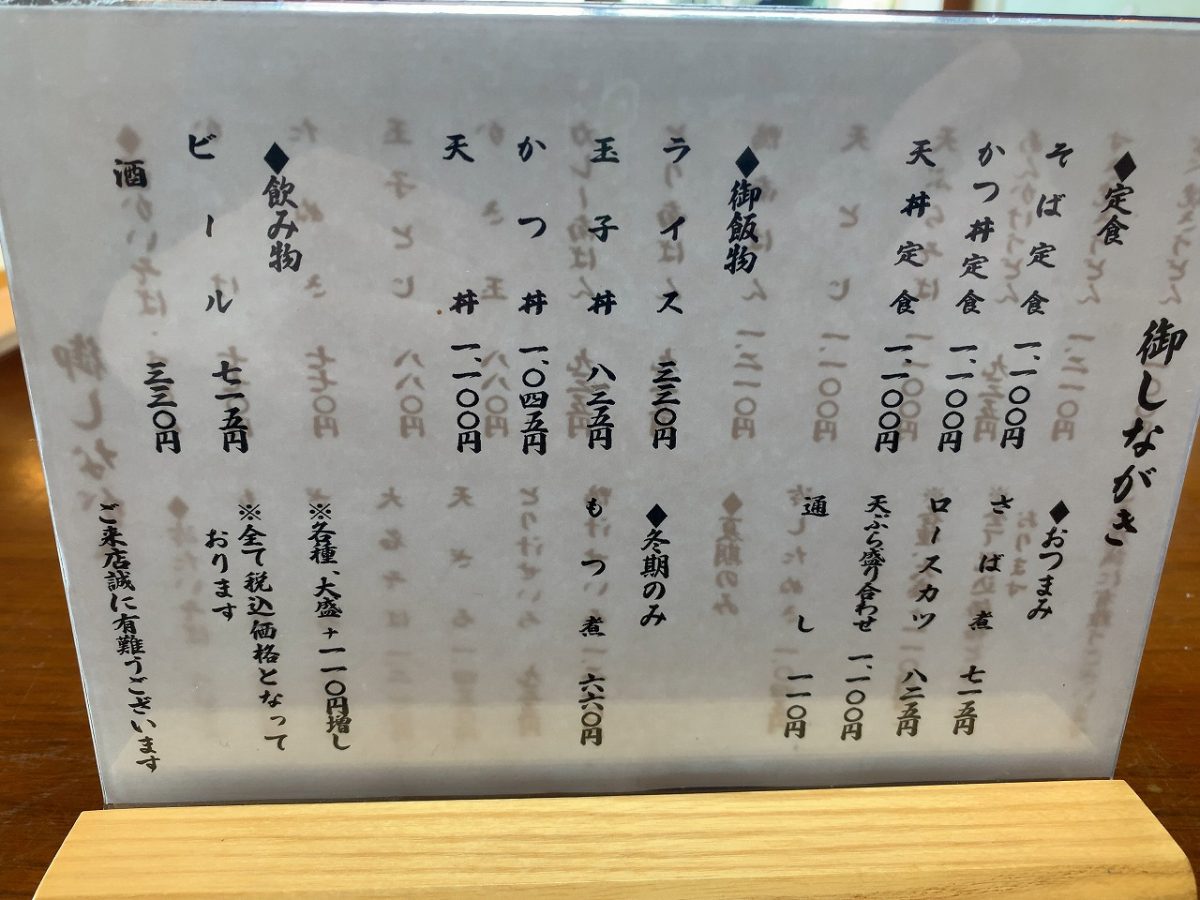 御しながき
◆定食
そば定食 一、一〇〇円
かつ丼定食 一、一〇〇円
天丼定食 一、一〇〇円
◆御飯物
ライス 三三〇円
玉子丼 八二五円
かつ丼 一、〇四五円
天丼 一、一〇〇円
◆飲み物
ビール 七一五円
酒 三三〇円
◆おつまみ
さば煮 七一五円
ロースカツ 八二五円
天ぷら盛り合わせ 一、一〇〇円
通し 一一〇円
◆冬期のみ
もつ煮 六六〇円
※各種、大盛+一一〇円増し
※全て税込価格となって
おります
ご来店誠に有難うございます